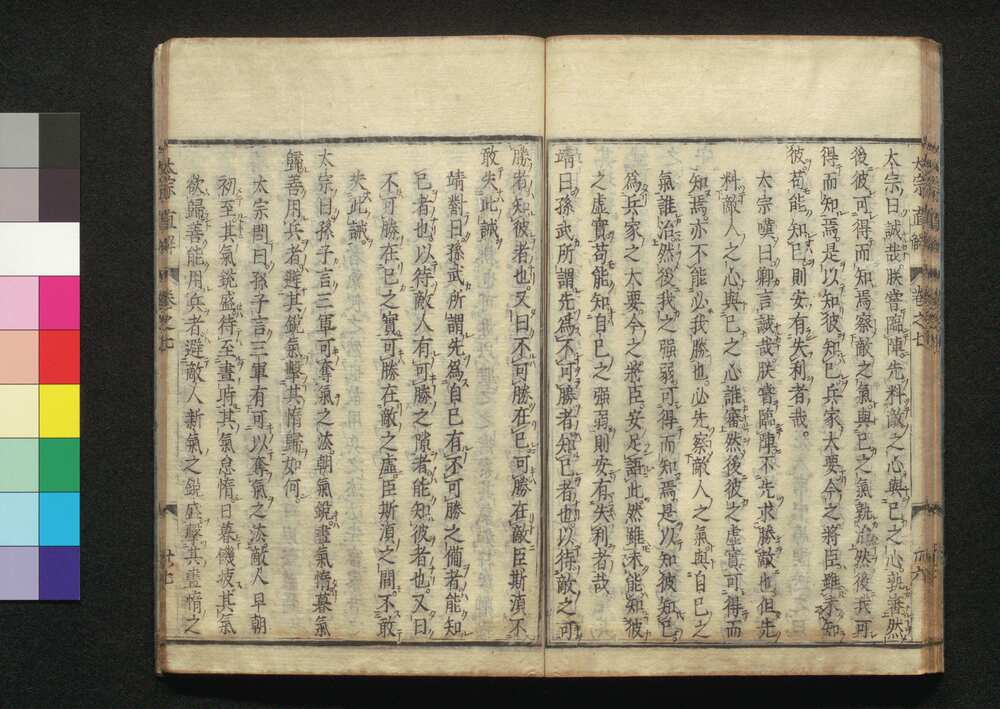 太宗直解 卷之七
太宗曰誠哉朕嘗臨陣先料敵之心與己之心孰審然
後彼可得而知焉察敵之氣與己之氣孰治然後我可
得而知焉是以知彼知己兵家大要今之將臣雖未知
彼苟能知己則安有失利者哉
太宗嘆曰卿言誠哉朕嘗臨陣不先求勝敵也但先
料敵人之心與己之心誰審然後彼之虛實可得而
知焉亦不能必我勝也必先察敵人之氣與自己之
氣誰治然後我之强弱可得而知焉是以知彼知己
爲兵家之大要今之將臣安足語此然雖未能知彼
之虛實苟能知自己之强弱則安有失利者哉
靖曰孫武所謂先爲不可勝者知己者也以待敵之可
勝者知彼者也又曰不可勝在己可勝在敵臣斯須不
敢失此誡
靖對曰孫武所謂先爲自己有不可勝之備者能知
己者也以待敵人有可勝之隙者能知彼者也又曰
不可勝在己之實可勝在敵之虛臣斯須之間不敢
失此誡
太宗曰孫子言三軍可奪氣之法朝氣銳晝氣惰暮氣
歸善用兵者避其銳氣擊其惰歸如何
太宗問曰孫子言三軍有可以奪氣之法敵人早朝
初至其氣銳盛待至晝時其氣怠惰日暮饑疲其氣
欲歸善能用兵者避敵人新氣之銳盛擊其晝惰之
太宗直解 卷之七